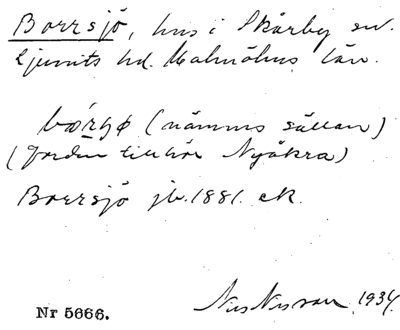 Borrsjö, hus i Skårby sn.
Ljunits hd. Malmöhus län.
(nämnes sällan)
(Jorden tillhör Nyåkra)
Borrsjö jb. 1881. ek.
Nils Nilsson 1934.
Nr 5666.